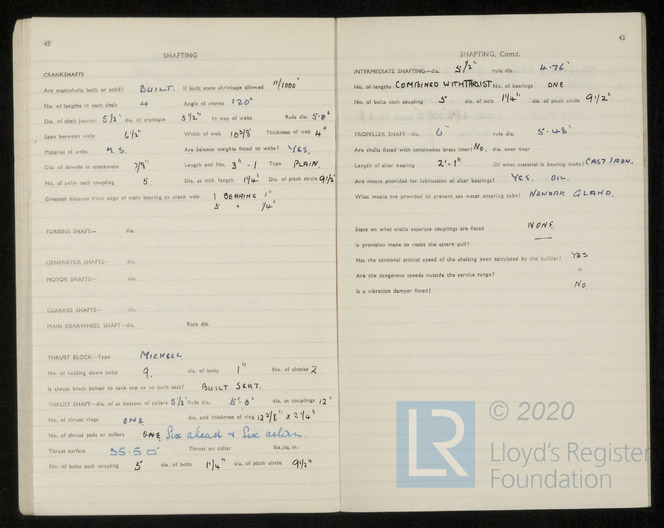 42
SHAFTING
CRANKSHAFTS
Are crankshafts built or solid? BUILT. If built state shrinkage allowed "/1000"
No. of lengths in each shaft 4 Angle of cranks 120°
Dia. of shaft journal 5 1/2" dia. of crankpin 5 1/2" in way of webs Rule dia. 5·0"
Span between webs 6 1/2" Width of web 10 3/8" Thickness of web 4"
Material of webs M.S. Are balance weights fitted to webs? YES.
Dia. of dowels in crankwebs 7/8" Length and No. 3" - 1 Type PLAIN.
No. of bolts each coupling 5 Dia. at mid. length 1 1/4" Dia. of pitch circle 9 1/2"
Greatest distance from edge of main bearing to crank web 1 BEARING 1"
5 " 1/4"
TURBINE SHAFT— dia.
GENERATOR SHAFTS— dia.
MOTOR SHAFTS— dia.
GEARING SHAFTS— dia.
MAIN GEARWHEEL SHAFT—dia. Rule dia.
THRUST BLOCK—Type MICHELL
No. of holding down bolts 9. dia. of bolts 1" No. of chocks 2
Is thrust block bolted to tank top or to built seat? BUILT SEAT.
THRUST SHAFT—dia. of at bottom of collars 5 1/2" Rule dia. 5·0" dia. at couplings 12"
No. of thrust rings ONE dia. and thickness of ring 12 3/8" x 2 1/4"
No. of thrust pads or collars Six ahead & Six astern.
Thrust surface 55·5 □" Thrust on collar lbs./sq. in.
No. of bolts each coupling 5 dia. of bolts 1 1/4" dia. of pitch circle 9 1/2"
43
SHAFTING, Contd.
INTERMEDIATE SHAFTING—dia. 5 1/2" rule dia. 4·76"
No. of lengths COMBINED WITH THRUST No. of bearings ONE
No. of bolts each coupling 5 dia. of bolt 1 1/4" dia. of pitch circle 9 1/2"
PROPELLER SHAFT—dia. 6" rule dia. 5·48"
Are shafts fitted with continuous brass liner? NO. dia. over liner
Length of after bearing 2'-1" Of what material is bearing made? CAST IRON.
Are means provided for lubrication of after bearings? YES. OIL.
What means are provided to prevent sea water entering tube? NEWARK GLAND.
State on what shafts separate couplings are fitted NONE
Is provision made to resist the astern pull? —
Has the torsional critical speed of the shafting been calculated by the builder? YES
Are the dangerous speeds outside the service range? "
Is a vibration damper fitted? NO
LR
© 2020
Lloyd's Register
Foundation